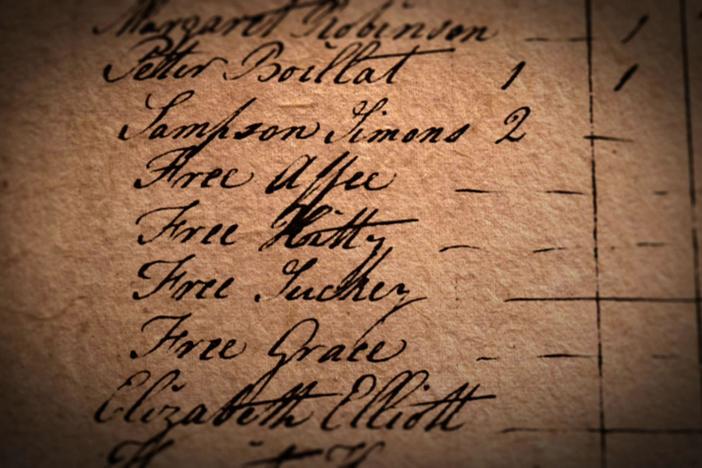 Margaret Robinson — 1
Peter Boillat 1 1
Sampson Simons 2 —
Free Affee — — —
Free Hitty — — —
Free Suckey —
Free Grace — — —
Elizabeth Elliott —